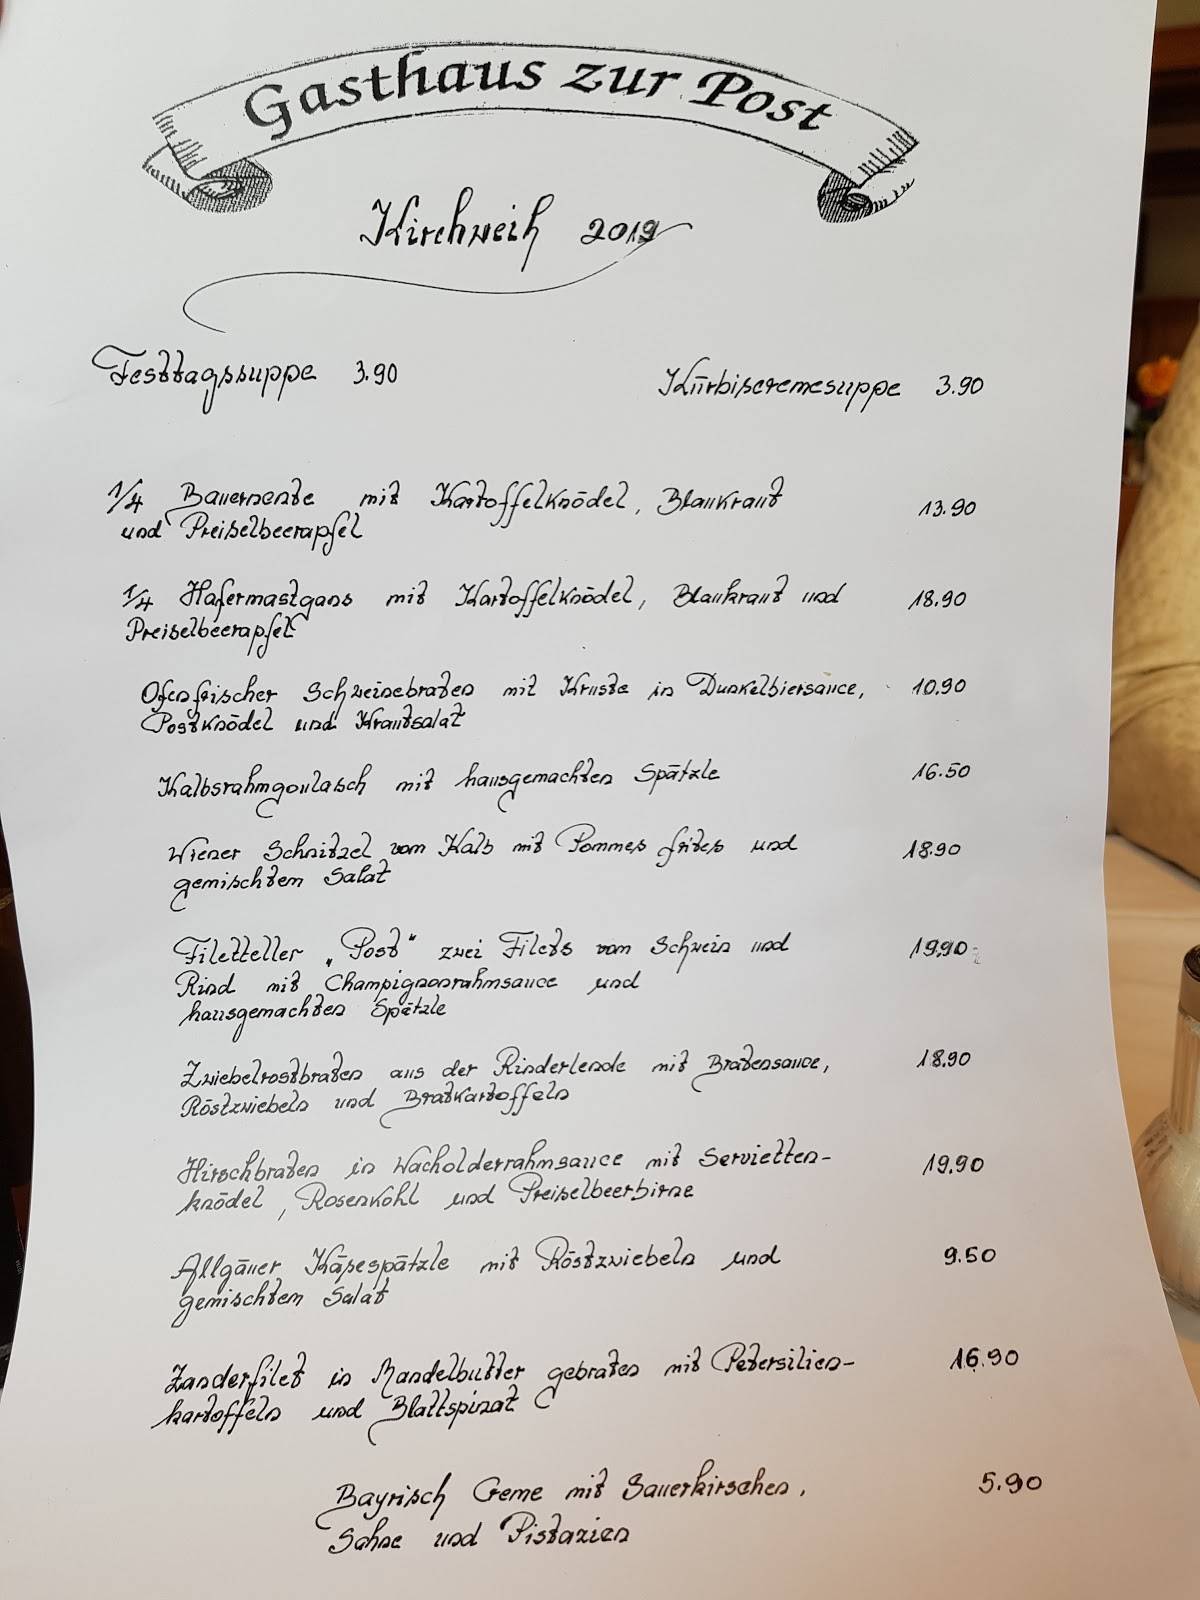 Gasthaus zur Post
Kirchweih 2019
Festtagssuppe 3.90
Kürbiscremesuppe 3.90
1/4 Bauernente mit Kartoffelknödel, Blaukraut 13.90
und Preiselbeerapfel
1/4 Hafermastgans mit Kartoffelknödel, Blaukraut und 18.90
Preiselbeerapfel
Ofenfrischer Schweinebraten mit Kruste in Dunkelbiersauce, 10.90
Postknödel und Krautsalat
Kalbsrahmgoulasch mit hausgemachten Spätzle 16.50
Wiener Schnitzel vom Kalb mit Pommes frites und 18.90
gemischtem Salat
Filetteller „Post" zwei Filets vom Schwein und 19.90
Rind mit Champignonrahmsauce und
hausgemachten Spätzle
Zwiebelrostbraten aus der Rinderlende mit Bratensauce, 18.90
Röstzwiebeln und Bratkartoffeln
Hirschbraten in Wacholderrahmsauce mit Servietten- 19.90
knödel, Rosenkohl und Preiselbeerbirne
Allgäuer Käsespätzle mit Röstzwiebeln und 9.50
gemischtem Salat
Zanderfilet in Mandelbutter gebraten mit Petersilien- 16.90
kartoffeln und Blattspinat
Bayrisch Creme mit Sauerkirschen, 5.90
Sahne und Pistazien